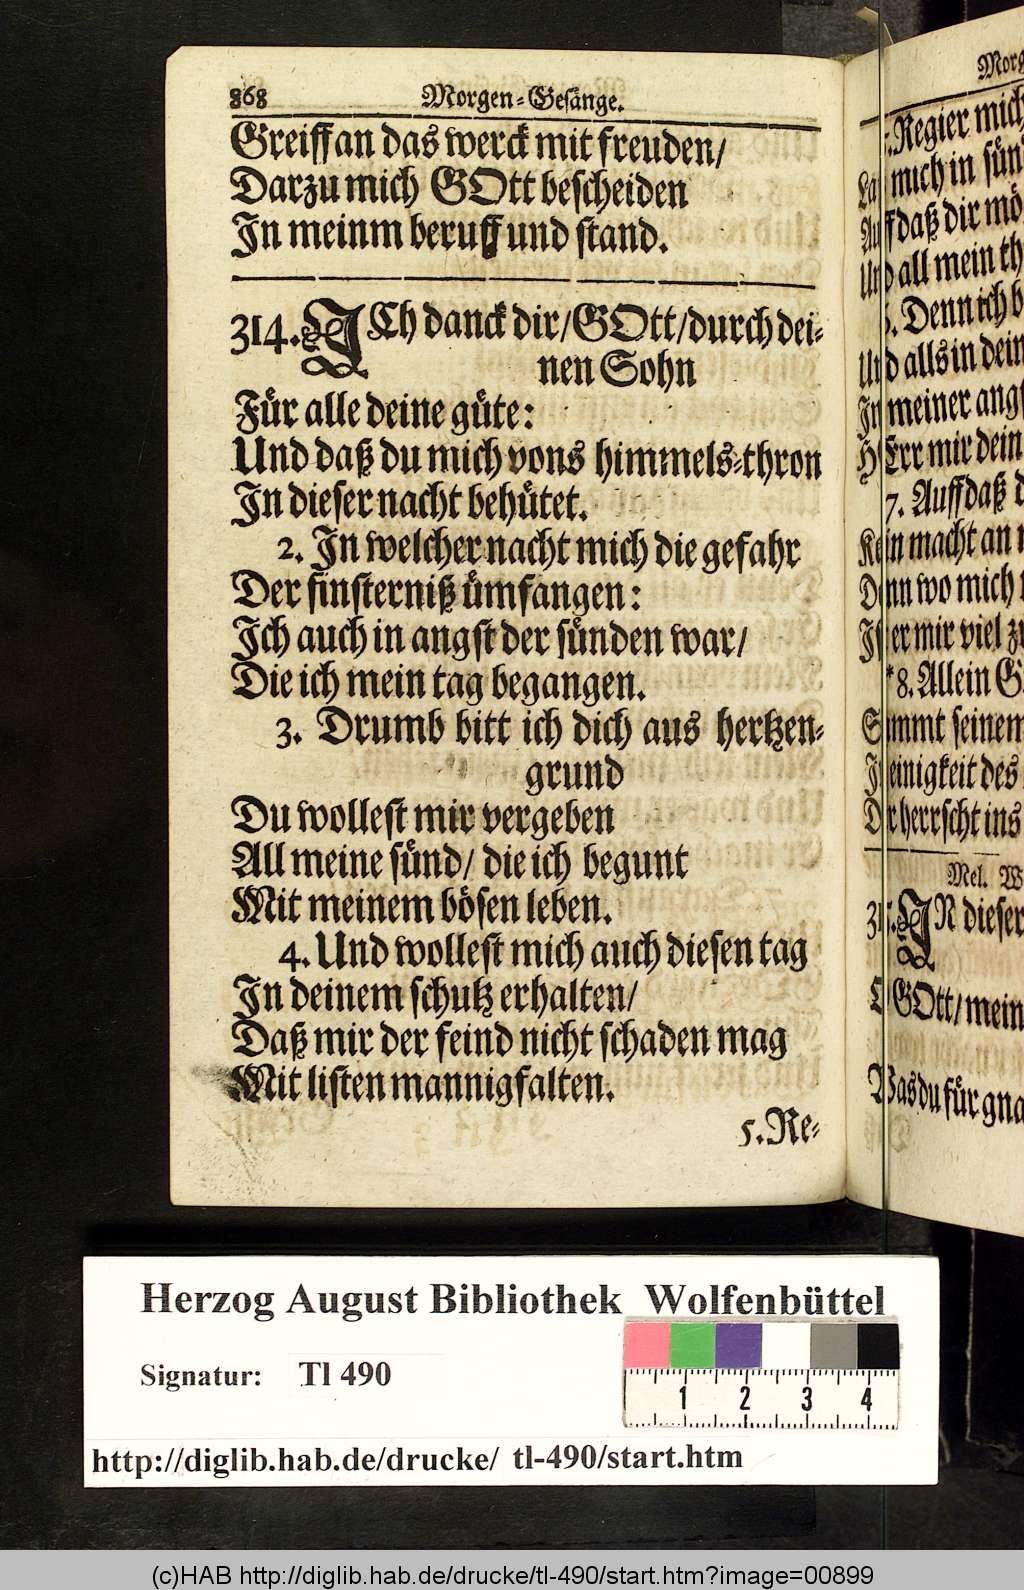 868 Morgen-Gesänge.
Greiff an das werck mit freuden/
Darzu mich GOtt bescheiden
In meinm beruff und stand.
314. ICh danck dir/GOtt/durch dei-
nen Sohn
Für alle deine güte:
Und daß du mich vons himmels-thron
In dieser nacht behütet.
2. In welcher nacht mich die gefahr
Der finsterniß ümfangen:
Ich auch in angst der sünden war/
Die ich mein tag begangen.
3. Drumb bitt ich dich aus hertzen-
grund
Du wollest mir vergeben
All meine sünd/ die ich begunt
Mit meinem bösen leben.
4. Und wollest mich auch diesen tag
In deinem schutz erhalten/
Daß mir der feind nicht schaden mag
Mit listen mannigfalten.
5. Re-
Regier mich
mich in
daß dir
all mein
Denn ich
alls in dein
meiner
HErr mir dein
7. Auff daß
macht an
wo mich
er mir viel
*8. Allein
seinem
einigkeit des
herrscht ins
Mel.
IN dieser
GOtt/ mein
Was du für
Herzog August Bibliothek Wolfenbüttel
Signatur: Tl 490
1 2 3 4
http://diglib.hab.de/drucke/ tl-490/start.htm
(c)HAB http://diglib.hab.de/drucke/tl-490/start.htm?image=00899